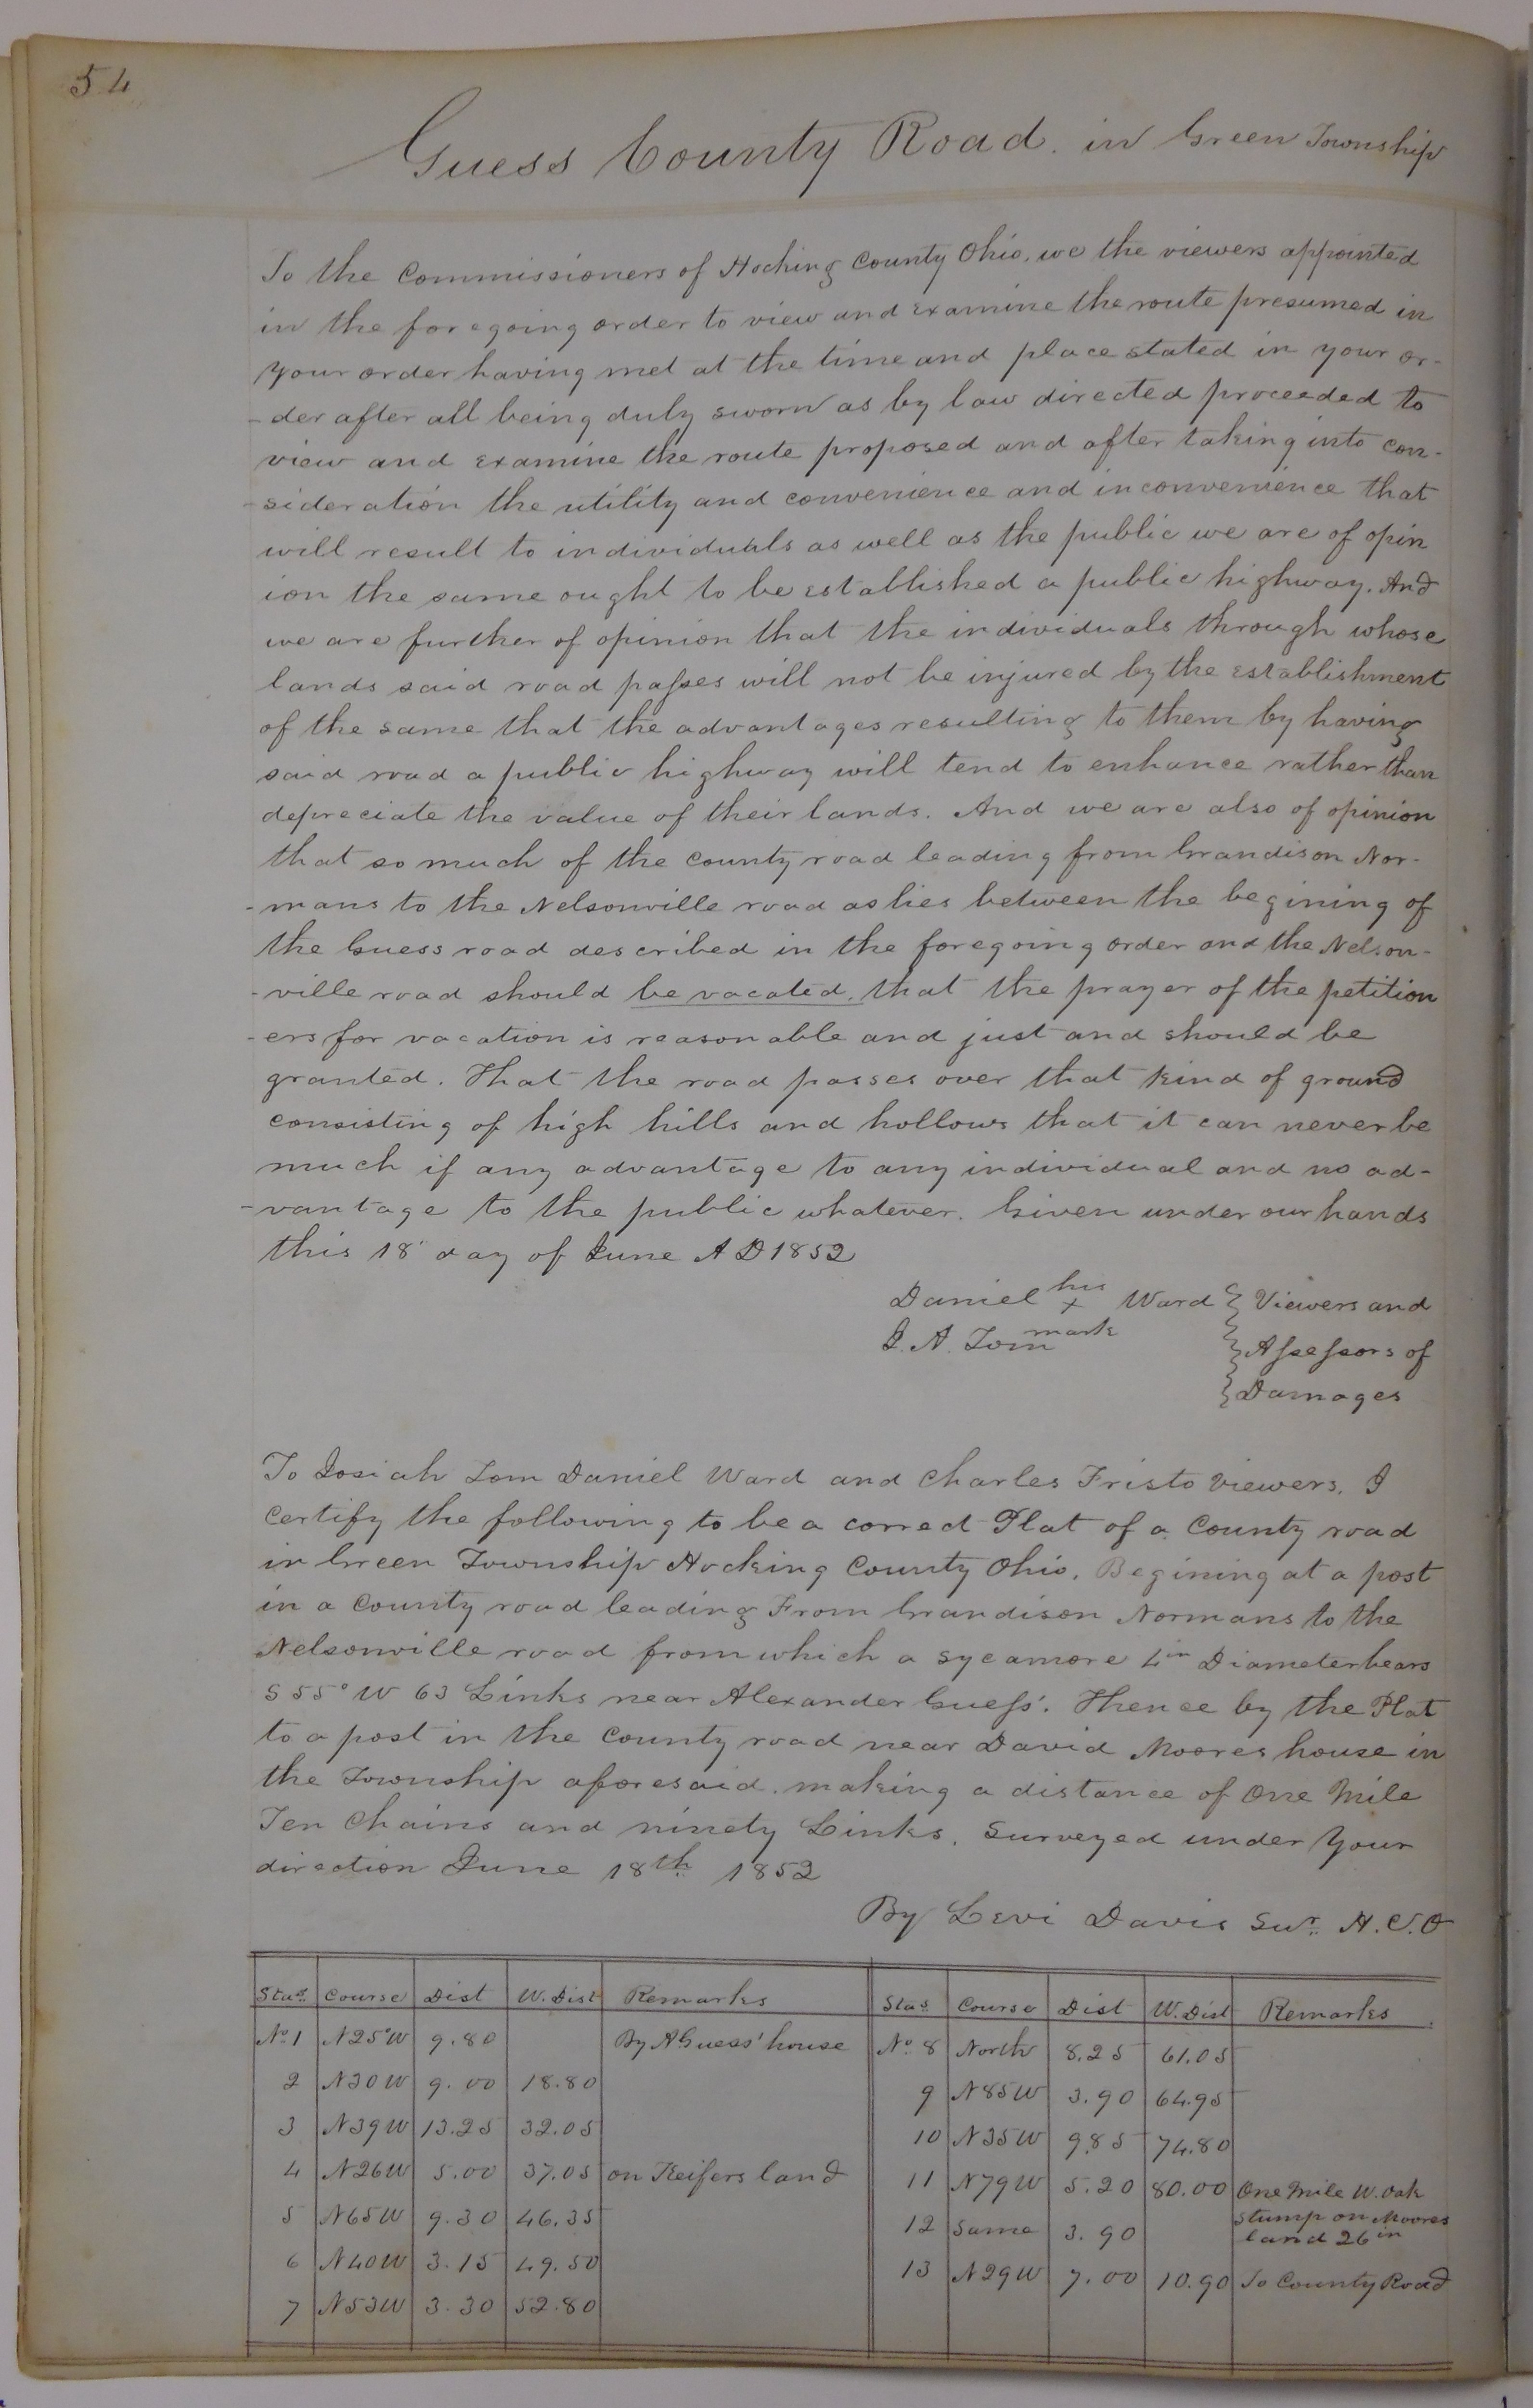 54
Guess County Road. in Green Township
To the Commissioners of Hocking County Ohio, we the viewers appointed
in the foregoing order to view and examine the route presumed in
your order having met at the time and place stated in your or-
-der after all being duly sworn as by law directed proceeded to
view and examine the route proposed and after taking into con-
-sideration the utility and convenience and inconvenience that
will result to individuals as well as the public we are of opin
ion the same ought to be established a public highway. And
we are further of opinion that the individuals through whose
lands said road paſses will not be injured by the establishment
of the same that the advantages resulting to them by having
said road a public highway will tend to enhance rather than
depreciate the value of their lands. And we are also of opinion
that so much of the county road leading from Grandison Nor-
-mans to the Nelsonville road as lies between the begining of
the Guess road described in the foregoing order and the Nelson-
-ville road should be vacated, that the prayer of the petition
-ers for vacation is reasonable and just and should be
granted. That the road passes over that kind of ground
consisting of high hills and hollows that it can never be
much if any advantage to any individual and no ad-
-vantage to the public whatever. Given under our hands
this 18 day of June A D 1852
Daniel his x Ward } Viewers and
J. A. Tom mark } Aſseſsors of
} Damages
To Josiah Tom Daniel Ward and Charles Fristo viewers. I
certify the following to be a correct Plat of a County road
in Green Township Hocking County Ohio. Begining at a post
in a County road leading From Grandison Normans to the
Nelsonville road from which a sycamore 4 in Diameter bears
S 55° W 63 Links near Alexander Gueſs'. Thence by the Plat
to a post in the County road near David Moores house in
the Township aforesaid. making a distance of One Mile
Ten Chains and ninety Links. Surveyed under Your
direction June 18th 1852
By Levi Davis Sur. H.C.O
Stas. Course Dist W. Dist Remarks Stas Course Dist W. Dist Remarks
No. 1 N25°W 9.80 By A Guess' house No. 8 North 8.25 61.05
2 N30W 9.00 18.80 9 N85W 3.90 64.95
3 N39W 13.25 32.05 10 N35W 9.85 74.80
4 N26W 5.00 37.05 on Keifers land 11 N79W 5.20 80.00 One Mile W. Oak
stump on Moores
land 26 in
5 N65W 9.30 46.35 12 Same 3.90
6 N40W 3.15 49.50 13 N29W 7.00 10.90 To County Road
7 N53W 3.30 52.80